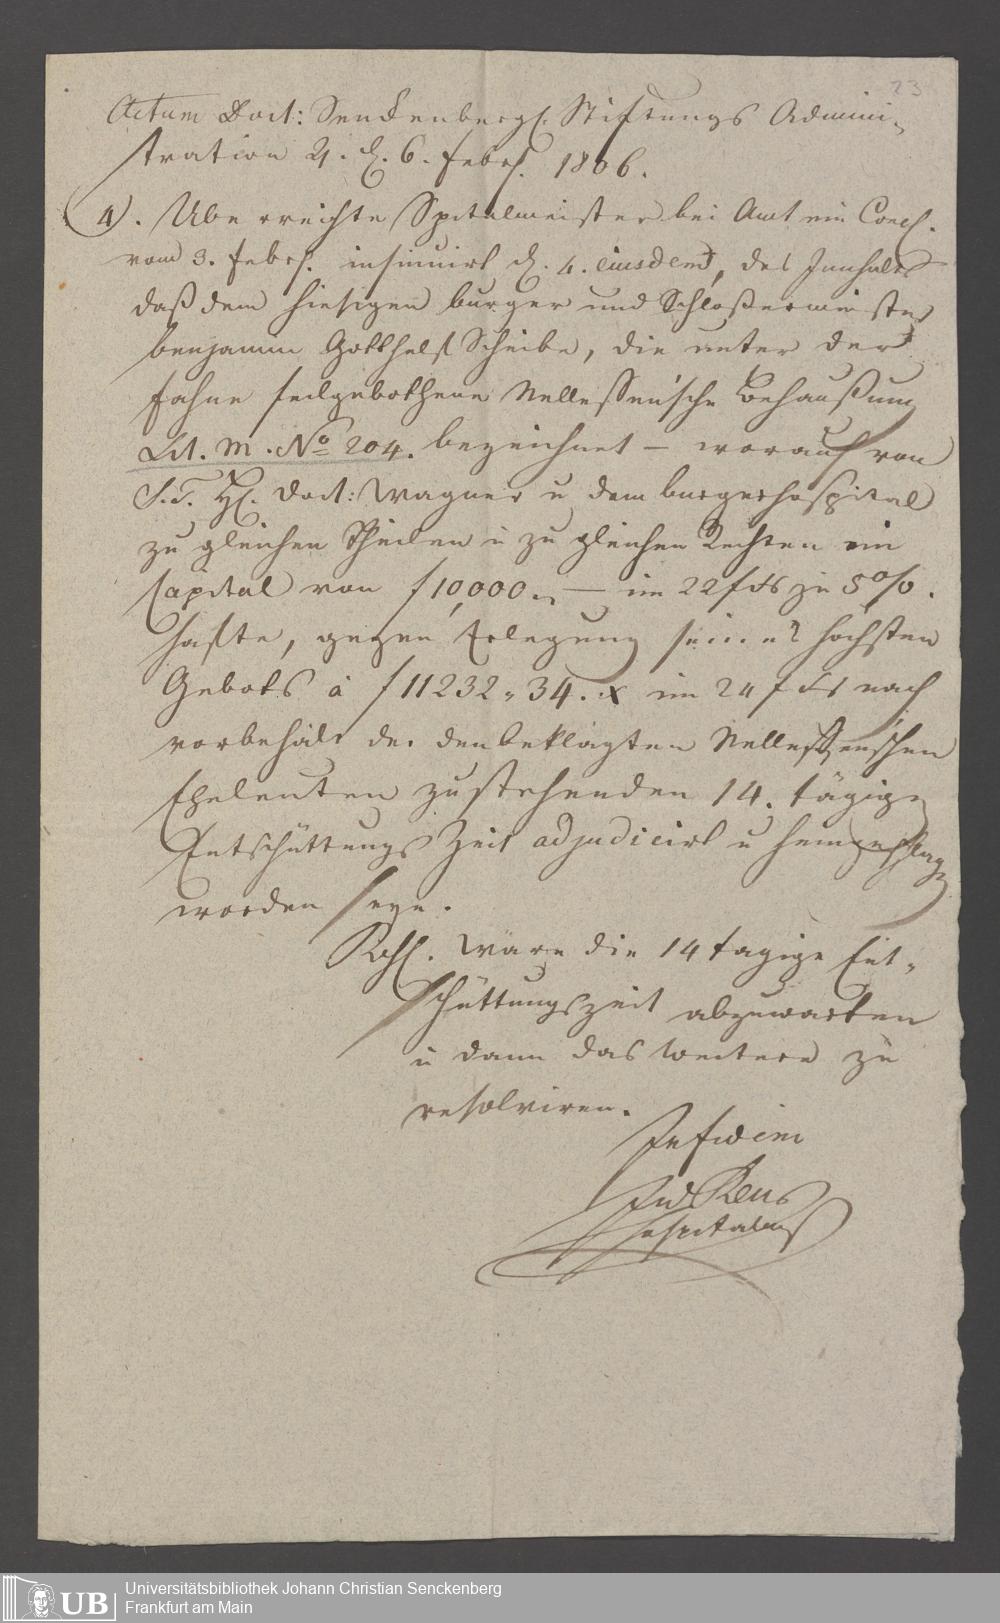 23
Actum Doct: Senckenbergl. Stiftungs Admini-
stration 4. d. 6. Febr. 1806.
4). Uberreichte Spitalmeister bei Amt ein Concl.
vom 3. Febr. insinuirt d. 4. eiusdem, des Innhalts
daß dem hiesigen burger und Schloßermeister
benjamin Gotthelf Scheibe, die unter der
Fahne feilgebothene Nelleßen'sche Behaußung
Lit. M. No 204. bezeichnet – worauf von
S.T. H. Doct: Wagner u dem burgerhospital
zu gleichen Theilen u zu gleichen Rechten ein
Capital von f 10,000.„ – im 22 f fs zu 5 o/o.
hafte, gegen Erlegung seines hochsten
Gebots à f 11232„34. x im 24 f fs nach
vorbehalt der den beklagten Nelleßen'schen
Eheleuten zustehenden 14. tägigen
Entschüttungs Zeit adjudicirt u heimgeschlagen
worden seye.
Rsl. wäre die 14 tagige Ent-
schüttungszeit abzuwarten
u dann das weitere zu
resolviren.
In fidem
Reus
hospitalms
UB
Universitätsbibliothek Johann Christian Senckenberg
Frankfurt am Main